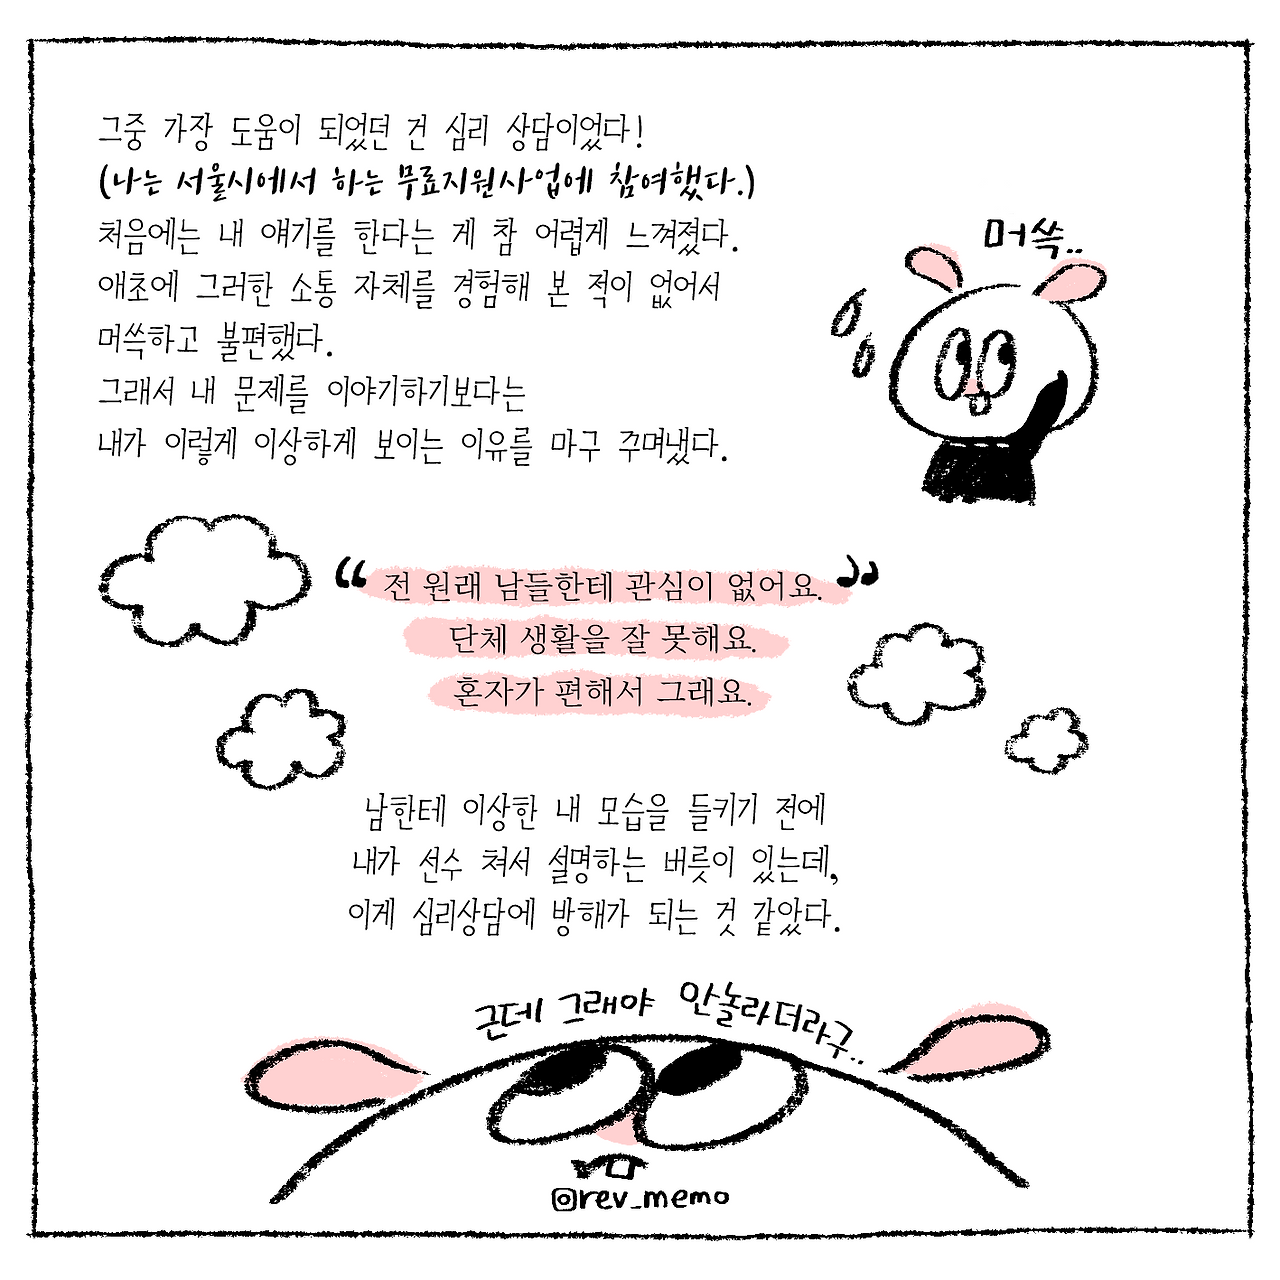 그중 가장 도움이 되었던 건 심리 상담이었다!
(나는 서울시에서 하는 무료지원사업에 참여했다.)
처음에는 내 얘기를 한다는 게 참 어렵게 느껴졌다.
애초에 그러한 소통 자체를 경험해 본 적이 없어서
머쓱하고 불편했다.
그래서 내 문제를 이야기하기보다는
내가 이렇게 이상하게 보이는 이유를 마구 꾸며냈다.
머쓱..
“전 원래 남들한테 관심이 없어요.”
단체 생활을 잘 못해요.
혼자가 편해서 그래요.
남한테 이상한 내 모습을 들키기 전에
내가 선수 쳐서 설명하는 버릇이 있는데,
이게 심리상담에 방해가 되는 것 같았다.
근데 그래야 안놀라더라구..
@rev_memo